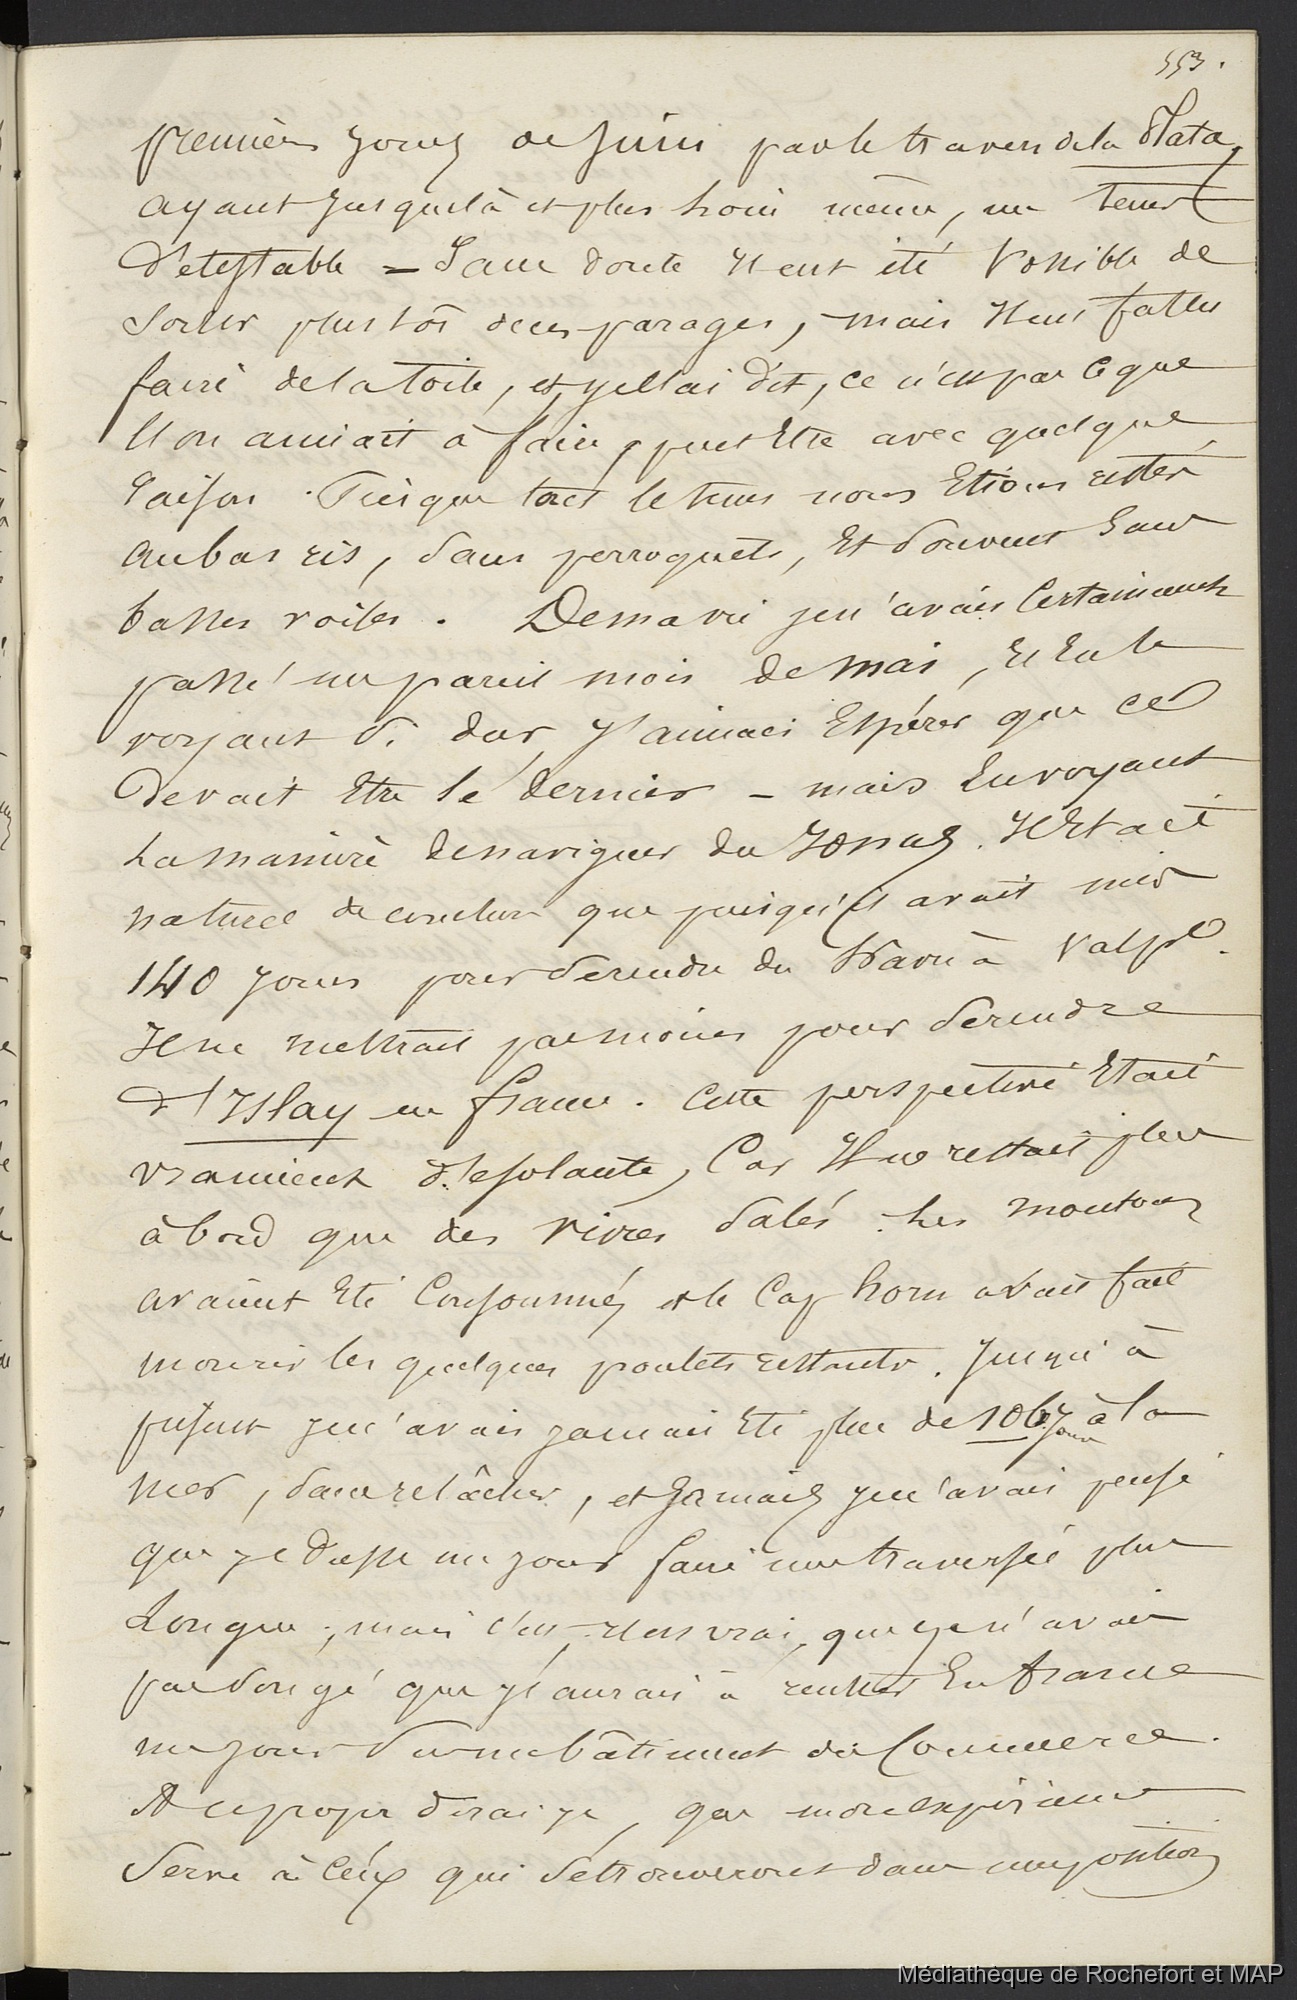 553.
premiers jours de Juin par le travers de la Plata,
ayant jusque là et plus loin même, un tems
détestable = Sans doute il eut été possible de
sortir plus tôt de ces parages, mais il eut fallu
faire de la toile, et, je l'ai dit, ce n'est pas ce que
l'on aimait à faire, peut être avec quelque
raison. Puisque tout le tems nous étions restés
au bas ris, sans perroquets, et souvent sans
basses voiles. De ma vie je n'avais certainement
passé un pareil mois de mai, et en le
voyant si dur, j'aimais espérer que ce
devait être le dernier - mais en voyant
la manière de naviguer du Jonas. Il était
naturel de conclure que puisqu'il avait mis
140 jours pour se rendre du Havre à Valpo.
Il ne mettrait pas moins pour se rendre
d'Islay en france. Cette perspective était
vraiment désolante, Car il ne restait plus
à bord que des vivres salés. Les moutons
avaient été consommés et le Cap horn avait fait
mourir les quelques poulets restants. Jusqu'à
présent je n'avais jamais été plus de 106 jours à la
mer, sans relâcher, et jamais je n'avais pensé
que je dusse un jour faire une traversée plus
longue; mais c'est, il est vrai, que je n'avais
pas songé que j'aurais à rentrer en france
un jour sur un bâtiment du Commerce.
A ce propos dirai-je, que mon expérience
serve à ceux qui se trouveront dans une position
Médiathèque de Rochefort et MAP